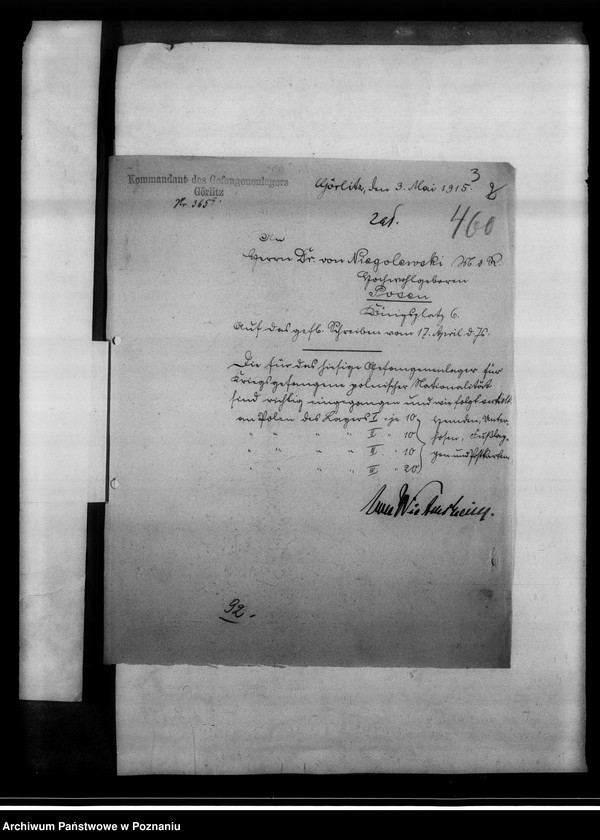 Kommandant des Gefangenenlagers
Görlitz
Nr. 365
Görlitz, den 3. Mai 1915.
3
460
An
Herrn Dr. von Niegolewski
Hochwohlgeboren
Posen
Königsplatz 6.
Auf das gefl. Schreiben vom 17. April d. Js.
Die für das hiesige Gefangenenlager für
Kriegsgefangene polnischer Nationalität
sind richtig eingegangen und wie folgt verteilt
an Polen des Lagers I je 10 Hemden, Unter-
" " " " II " 10 hosen, Fußlap-
" " " " " 10 pen und Postkarten
" " " " " 20
92.
Archiwum Państwowe w Poznaniu